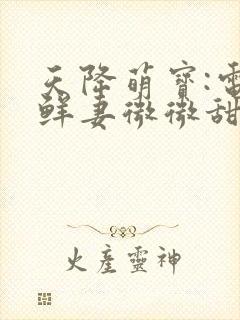 天降萌寶:電
鮮妻微微甜
火産靈神